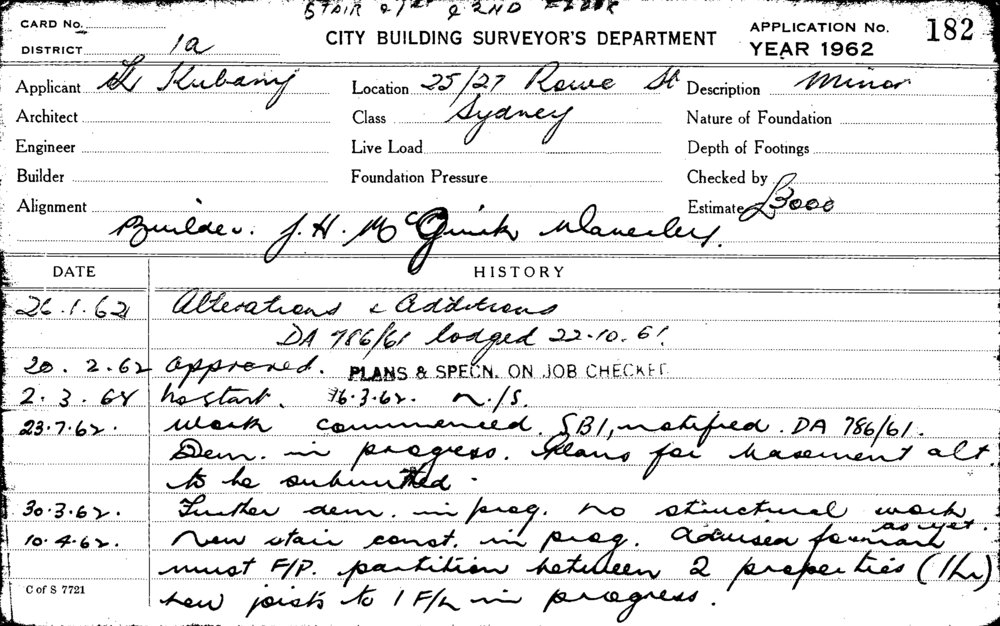 STAIR & 1st & 2ND FLOOR
CARD No.
DISTRICT 1a
CITY BUILDING SURVEYOR'S DEPARTMENT
APPLICATION No. 182
YEAR 1962
Applicant Kubany Location 25/27 Rowe St Description Minor
Architect Class Sydney Nature of Foundation
Engineer Live Load Depth of Footings
Builder Foundation Pressure Checked by
Alignment Estimate £3000
Builder. J. H. Waverley.
DATE HISTORY
26.1.62 Alterations & Additions
DA 786/61 lodged 22.10.61.
20.2.62 Approved. PLANS & SPECN. ON JOB CHECKED
2.3.62 No start. 16.3.62. N/S.
23.7.62. Work commenced. SBI, notified. DA 786/61.
Dem. in progress. Plans for basement alt.
to be submitted.
30.3.62. Further dem. in prog. no structural work
as yet.
10.4.62. New stair const. in prog. Advised foreman
must F/P. partition between 2 properties (1hr)
new joists to 1 F/L in progress.
C of S 7721